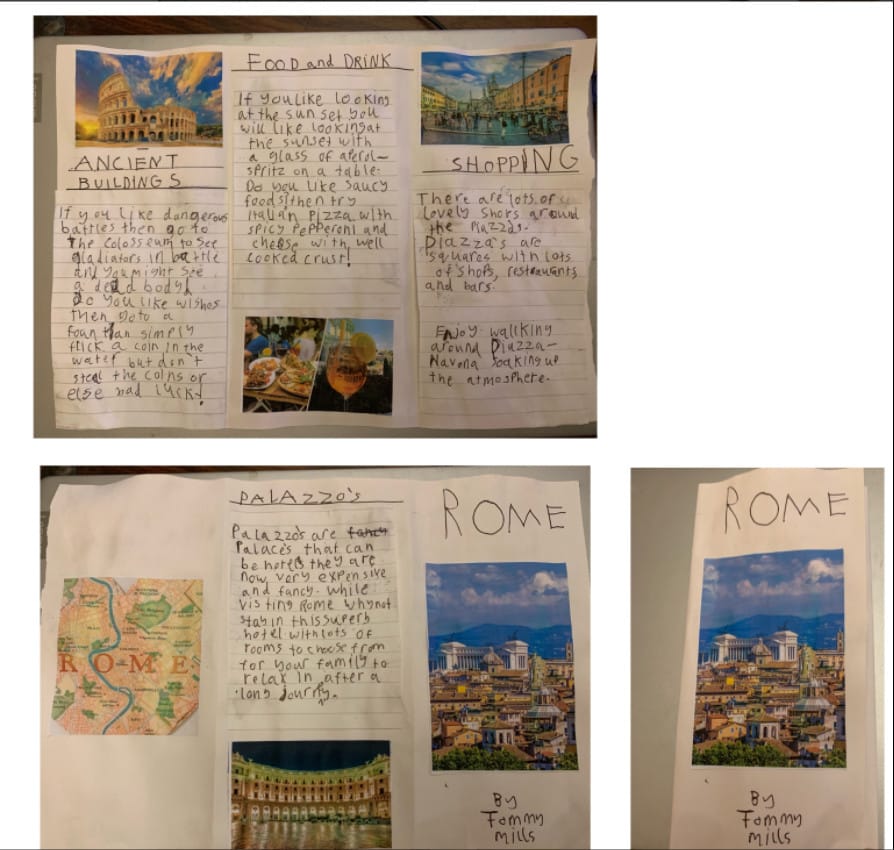 ANCIENT
BUILDINGS
If you like dangerous
battles then go to
The Colosseum to see
gladiators in battle
and you might see
a dead body!
do you like wishes
then goto a
fountian simply
flick a coin in the
water but don't
steal the coins or
else bad luck!
FOOD and DRINK
If you like looking
at the sun set you
will like looking at
the sunset with
a glass of aperol-
spritz on a table.
Do you like saucy
foods then try
italian pizza with
spicy pepperoni and
cheese with well
cooked crust!
SHOPPING
There are lots of
lovely shops around
the Piazzas.
Piazza's are
squares with lots
of shops, restaurants
and bars.
Enjoy wallking
around Piazza-
Navona soaking up
the atmosphere.
ROME
PALAZZO'S
Palazzo's are fancy
Palaces that can
be hotels they are
now very expensive
and fancy. While
visting Rome why not
stay in this superb
hotel with lots of
rooms to choose from
for your family to
relax in after a
long journy.
ROME
By
Tommy
Mills
ROME
By
Tommy
Mills